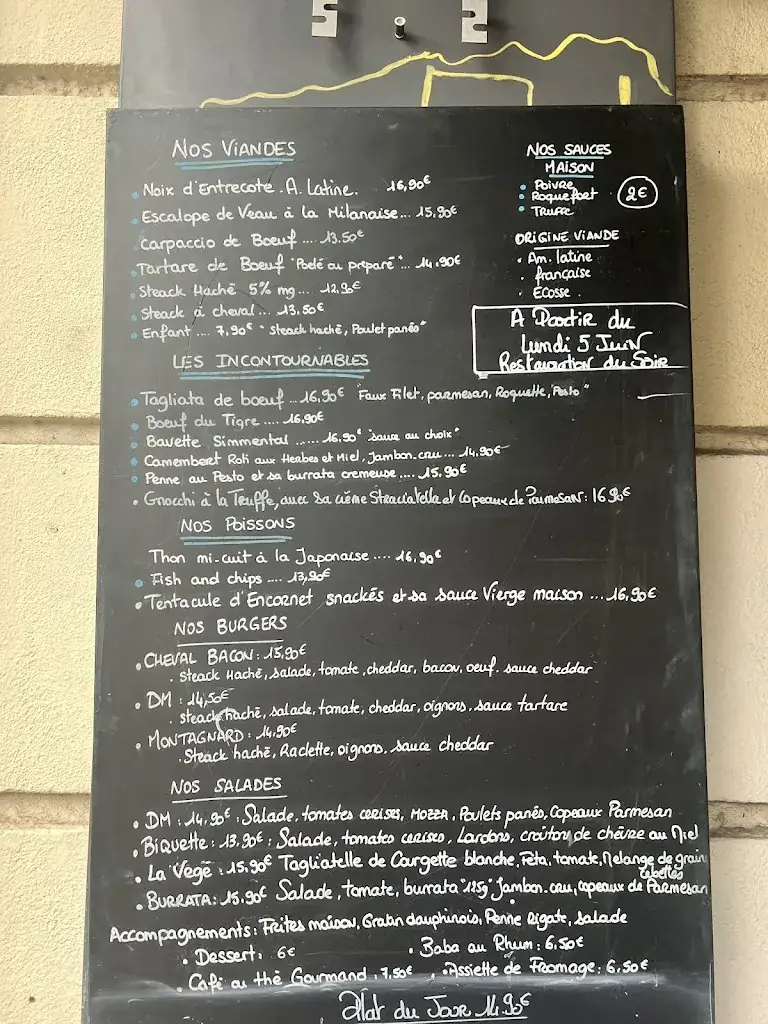 NOS VIANDES
Noix d'Entrecote. A. Latine. 16,90€
Escalope de Veau à la Milanaise... 15,90€
Carpaccio de Boeuf .... 13.50€
Tartare de Boeuf "Poelé ou préparé"... 14,90€
Steack Haché 5% mg .... 12,90€
Steack à cheval .... 13,50€
Enfant .... 7,90€ "Steack haché, Poulet panés"
NOS SAUCES
MAISON
Poivre
Roquefort
Truffe
2€
ORIGINE VIANDE
Am. latine
française
Ecosse.
A Partir du
Lundi 5 Juin
Restauration du Soir
LES INCONTOURNABLES
Tagliata de boeuf ...16,90€ "Faux Filet, parmesan, Roquette, Pesto"
Boeuf du Tigre .... 16,90€
Bavette Simmental ...... 16,90€ "sauce au choix"
Camembert Roti aux Herbes et Miel, Jambon.cru... 14,90€
Penne au Pesto et sa burrata cremeuse .... 15,90€
Gnocchi à la Truffe, avec sa crème Straciatella et Copeaux de Parmesan: 16.90€
NOS POISSONS
Thon mi-cuit à la Japonaise .... 16,90€
Fish and chips .... 13,90€
Tentacule d'Encornet snackés et sa sauce Vierge maison ... 16,90€
NOS BURGERS
CHEVAL BACON: 15,90€
. Steack Haché, salade, tomate, cheddar, bacon, oeuf. sauce cheddar
DM : 14,50€
. steack haché, salade, tomate, cheddar, oignons, sauce tartare
MONTAGNARD: 14,90€
. Steack haché, Raclette, oignons, sauce cheddar
NOS SALADES
DM: 14,90€: Salade, tomates cerises, MOZZA, Poulets panés, Copeaux Parmesan
BIQUETTE: 13,90€: Salade, tomates cerises, Lardons, croûton de chèvre au Miel
La Vegé: 15.90€ Tagliatelle de Courgette blanche, Feta, tomate, Melange de grain
BURRATA: 15.90€ Salade, tomate, burrata "125g" Jambon. cru, copeaux de Parmesan
Accompagnements: Frites maison, Gratin dauphinois, Penne Rigate, Salade
Dessert: 6€
Baba au Rhum: 6.50€
Café ou thé Gourmand: 7,50€
Assiette de Fromage: 6.50€
Plat du Jour 14.90€